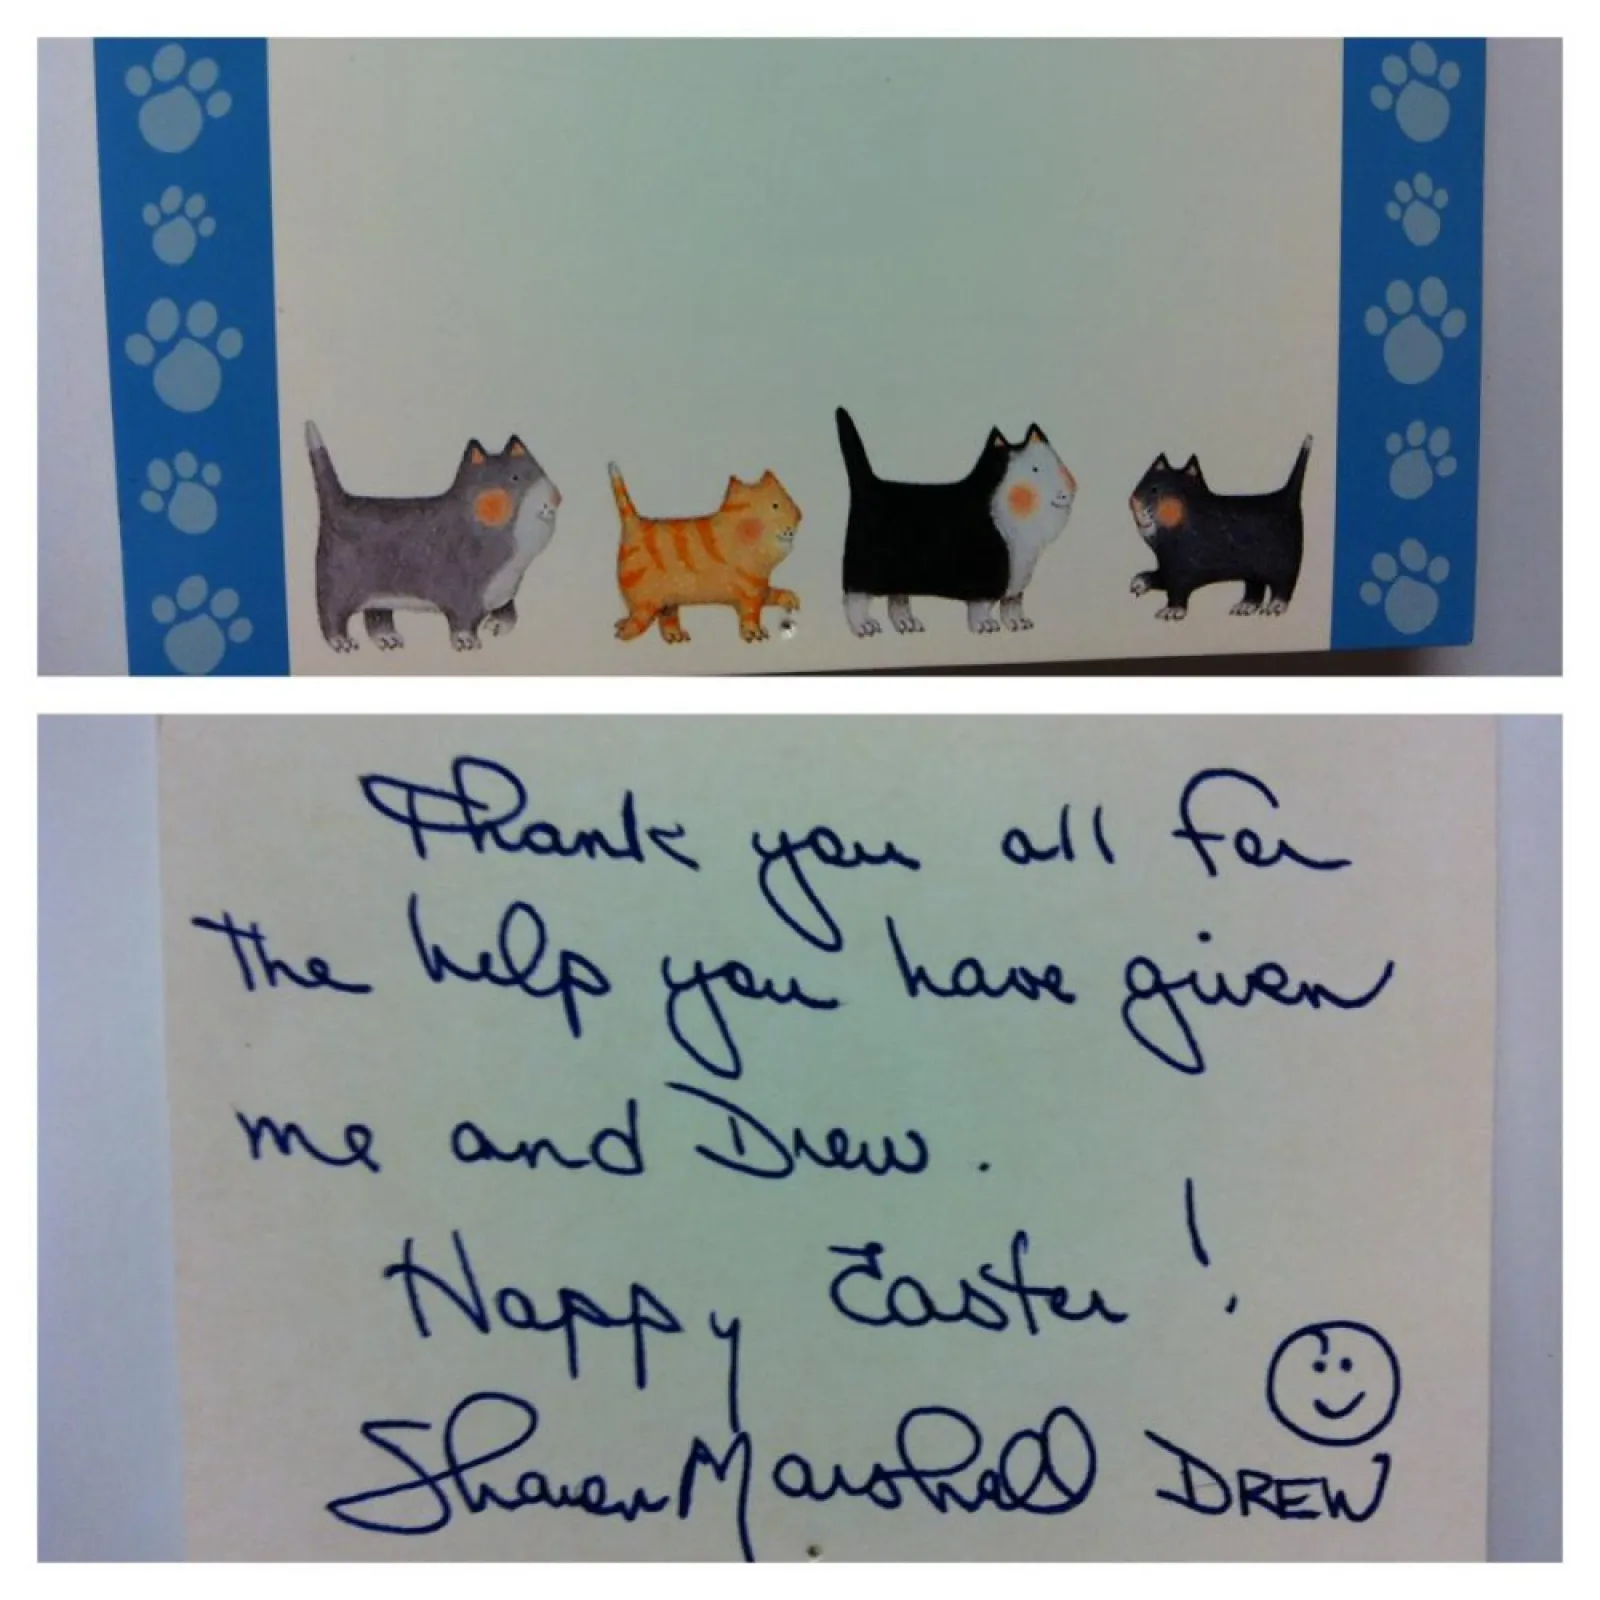 Thank you all for
the help you have given
me and Drew.
Happy Easter!
Sharon Marshall DREW